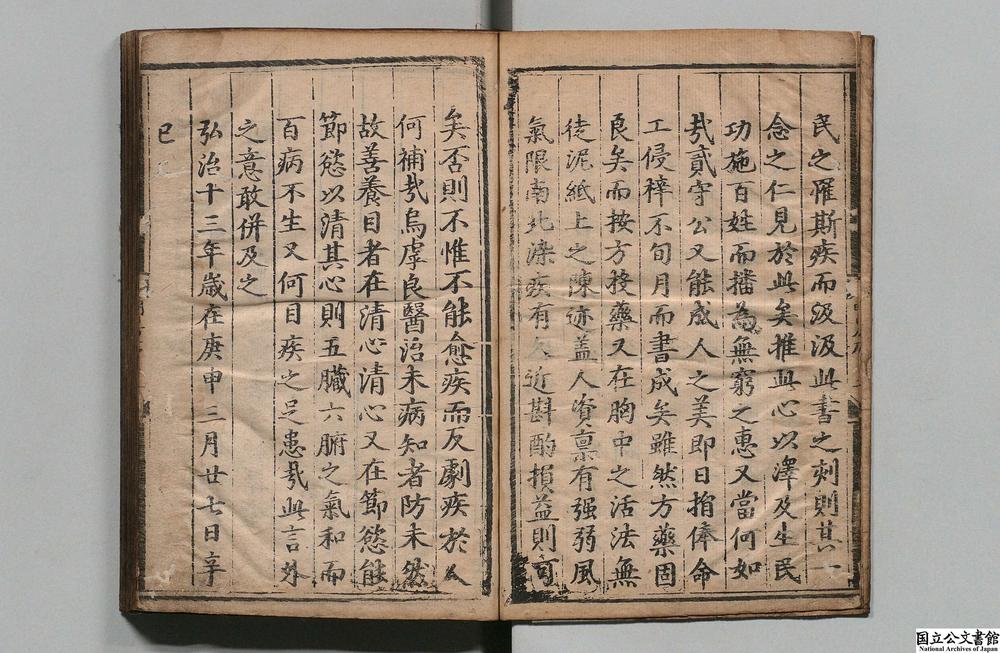 民之罹斯疾而汲汲此書之刻則其一
念之仁見於此矣推此心以澤及生民
功施百姓而播為無窮之惠又當何如
㢤貳守公又能成人之美即日捐俸命
工侵梓不旬月而書成矣雖然方藥固
良矣而按方投藥又在胸中之活法無
徒泥紙上之陳迹盖人資禀有强弱風
氣限南北染疾有久近斟酌損益則可
矣否則不惟不能愈疾而反劇疾於人
何補㢤烏虖良醫治未病知者防未然
故善養目者在清心清心又在節慾能
節慾以清其心則五臟六腑之氣和而
百病不生又何目疾之足患㢤此言外
之意敢併及之
弘治十三年歲在庚申三月廿七日辛
巳
国立公文書館
National Archives of Japan